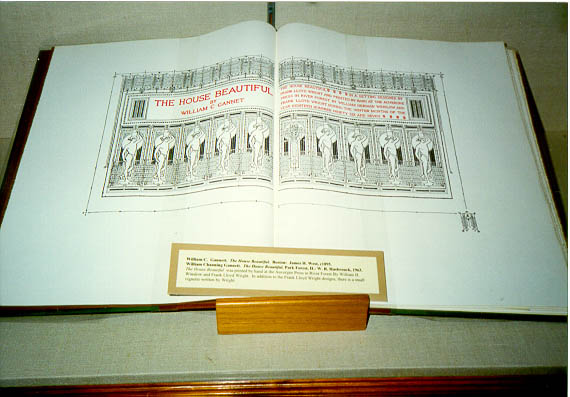 THE HOUSE BEAUTIFUL
BY
WILLIAM C GANNET
THE HOUSE BEAUTIFUL IS A SETTING DESIGNED BY
FRANK LLOYD WRIGHT AND PRINTED BY HAND AT THE AUVERGNE
PRESS IN RIVER FOREST BY WILLIAM HERMAN WINSLOW AND
FRANK LLOYD WRIGHT DURING THE WINTER MONTHS OF THE
YEAR EIGHTEEN HUNDRED NINETY SIX AND SEVEN
William C. Gannett. The House Beautiful. Boston: James H. West, c1895.
William Channing Gannett. The House Beautiful. Park Forest, IL: W. R. Hasbrouck, 1963.
The House Beautiful was printed by hand at the Auvergne Press in River Forest By William H.
Winslow and Frank Lloyd Wright. In addition to the Frank Lloyd Wright designs, there is a small
vignette written by Wright.